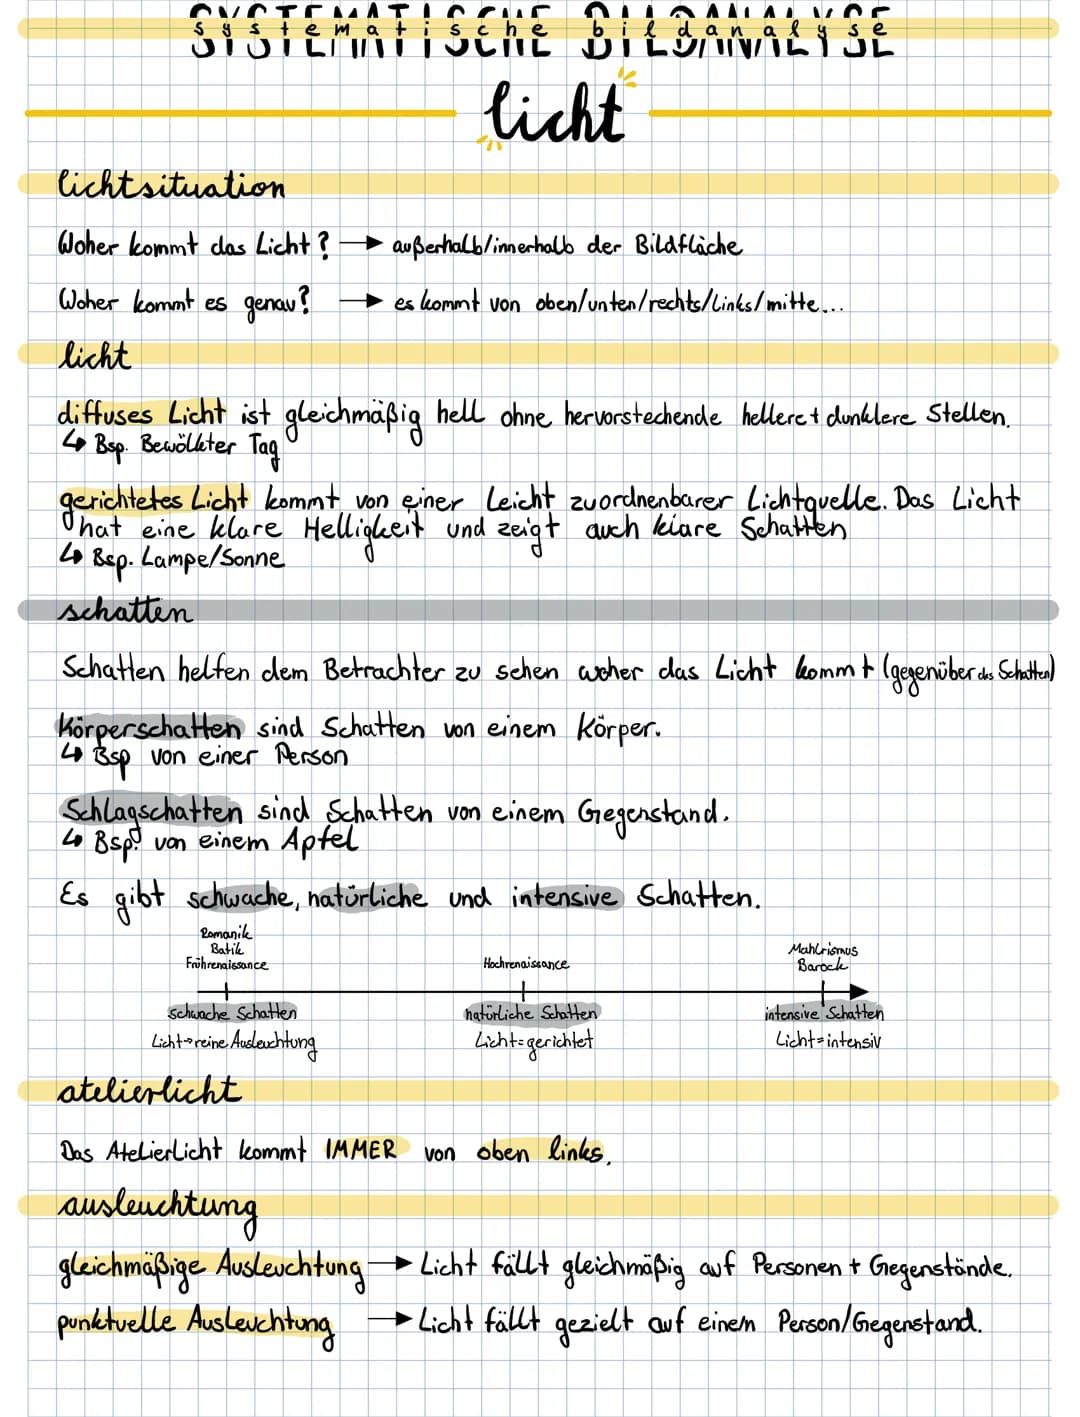 SYSTEMATISCHE BILDANALYSE
systematische bildanalyse
licht
lichtsituation
Woher kommt das Licht? → außerhalb/innerhalb der Bildfläche
Woher kommt es genau? → es kommt von oben/unten/rechts/links/mitte...
licht
diffuses Licht ist gleichmäßig hell ohne hervorstechende hellere + dunklere Stellen.
↳ Bsp. Bewölkter Tag
gerichtetes Licht kommt von einer leicht zuordnenbarer Lichtquelle. Das Licht
hat eine klare Helligkeit und zeigt auch klare Schatten
↳ Bsp. Lampe/Sonne
schatten
Schatten helfen dem Betrachter zu sehen woher das Licht kommt (gegenüber des Schatten)
Körperschatten sind Schatten von einem Körper.
↳ Bsp von einer Person
Schlagschatten sind Schatten von einem Gegenstand.
↳ Bsp. von einem Apfel
Es gibt schwache, natürliche und intensive Schatten.
Romanik
Batik
Frührenaissance
Hochrenaissance
Mahlrismus
Barock
schwache Schatten
natürliche Schatten
intensive Schatten
Licht→reine Ausleuchtung
Licht=gerichtet
Licht=intensiv
atelierlicht
Das Atelierlicht kommt IMMER von oben links.
ausleuchtung
gleichmäßige Ausleuchtung → Licht fällt gleichmäßig auf Personen + Gegenstände.
punktuelle Ausleuchtung → Licht fällt gezielt auf einem Person/Gegenstand.